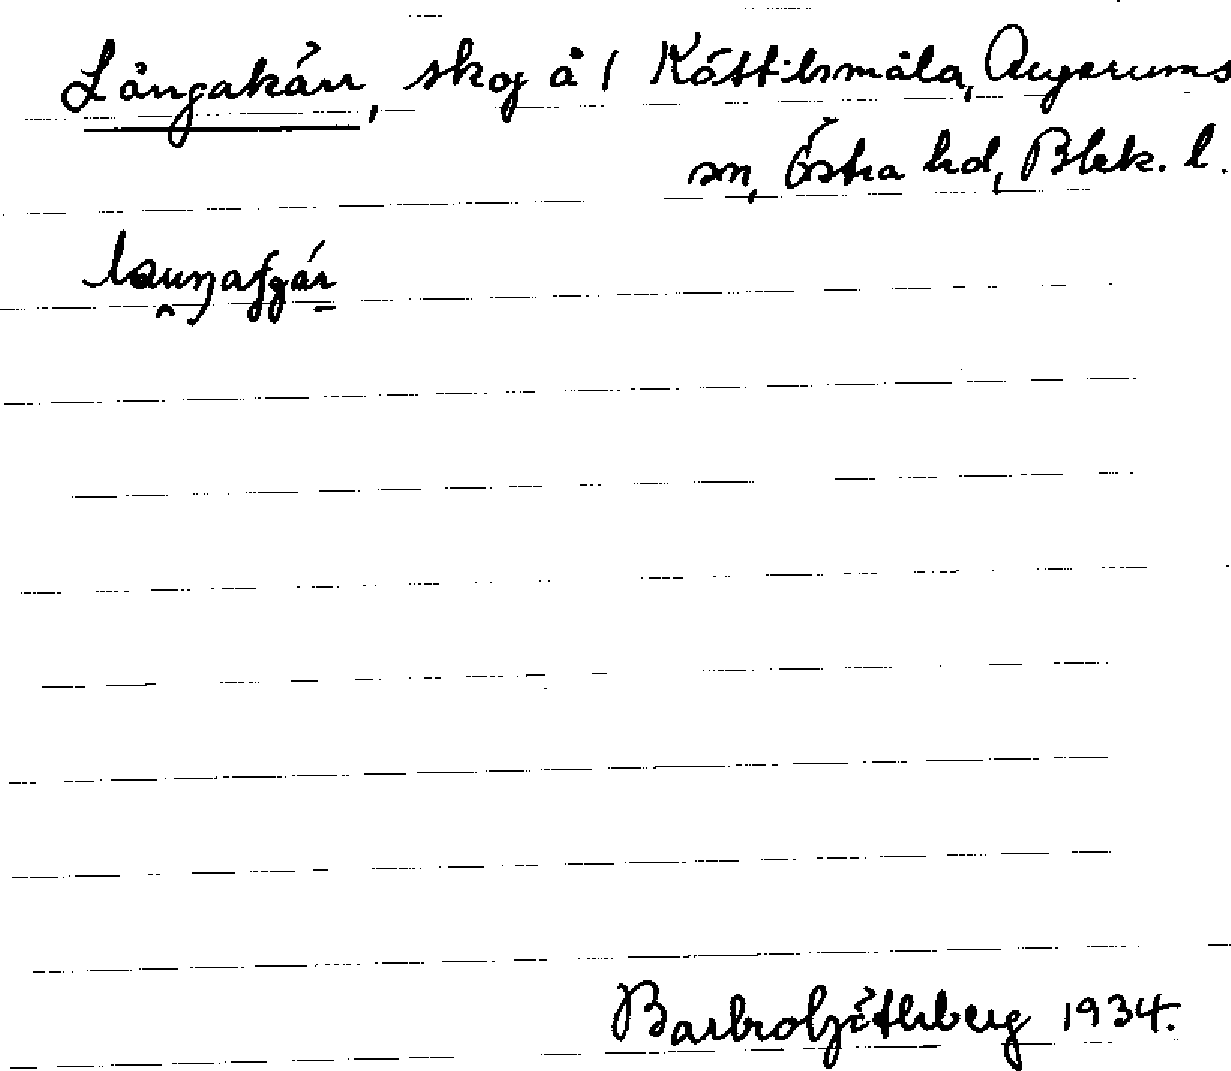 Långakärr, skog å 1 Köttilsmåla, Augerums
sn, Östra hd, Blek. l.
Barbro Göthberg 1934.